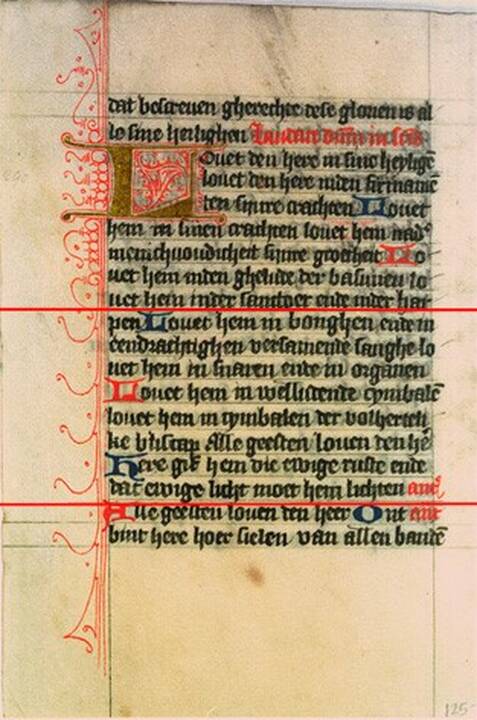 dat bescreuen gherechte dese glorien is al
le sine heilighen Laudate dnm in scis
Louet den here in sine heylige
louet den here inden firmamē
ten sijnre crachten Louet
hem in sinen crachten louet hem nad
menichuoudicheit sijnre groetheit Lo
uet hem inden ghelude der basunen lo
uet hem inder santoer ende inder har
pen Louet hem in bonghen ende in
eendrachtighen versamende sanghe lo
uet hem in snaren ende in organen
Louet hem in welludende cymbalē
louet hem in cymbalen der volherteli
ke bliscap Alle geesten louen den hē
Here gif hem die ewige ruste ende
dat ewige licht moet hem lichten
Alle geesten louen den heer Ont
bint here hoer sielen van allen bandē
125